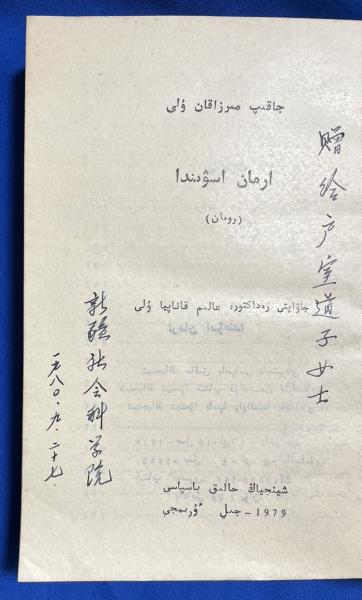 جاقىپ مىرزاقان ۇلى
ارمان اسۋىندا
(رومان)
جاۋاپتى رەداكتور: عالىم قاناپيا ۇلى
شينجياڭ حالىق باسپاسى
1979 - جىل ءۇرىمجى
赠给户室道子女士
新疆社会科学院
一九八〇.九.二十七.